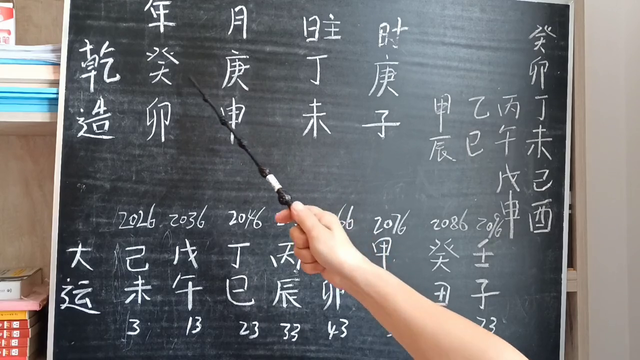 年 月 日主 时
乾 癸 庚 丁 庚
造 卯 申 未 子
癸卯
丁未
己酉
丙午
戊申
乙巳
甲辰
2026 2036 2046 2076 2086 2096
大 己 戊 丁 丙 甲 癸 壬
运 未 午 巳 辰 卯 丑 子
3 13 23 33 43